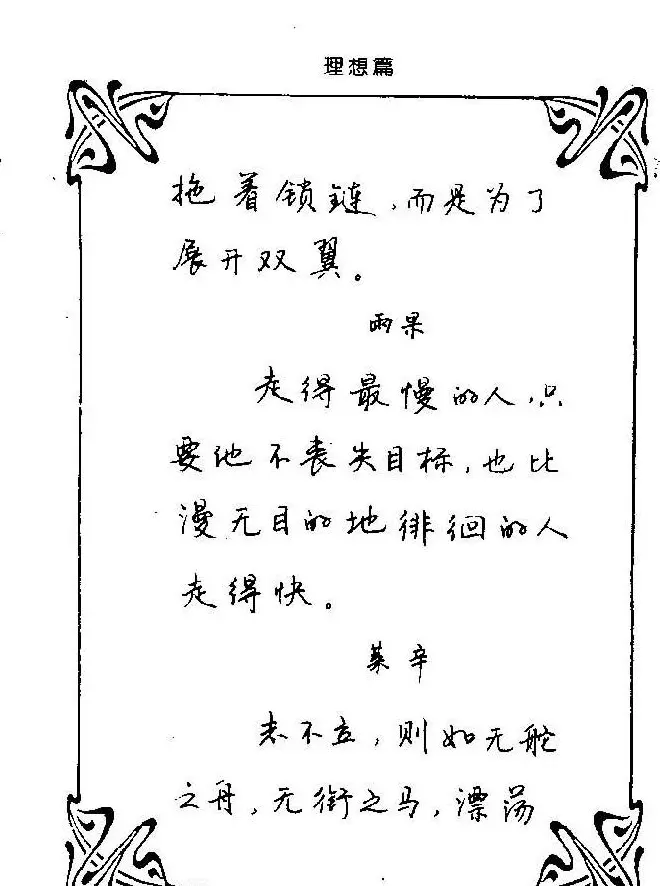 理想篇
拖着锁链,而是为了
展开双翼。
雨果
走得最慢的人,只
要他不丧失目标,也比
漫无目的地徘徊的人
走得快。
莱辛
志不立,则如无舵
之舟,无衔之马,漂荡